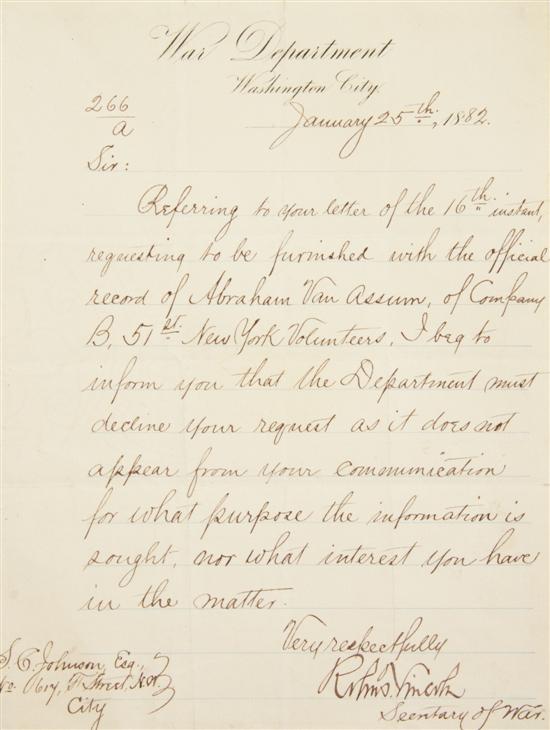 War Department
Washington City.
266
A
January 25th., 1882.
Sir:
Referring to your letter of the 16th. instant,
requesting to be furnished with the official
record of Abraham Van Assum, of Company
B, 51st. New York Volunteers, I beg to
inform you that the Department must
decline your request as it does not
appear from your communication
for what purpose the information is
sought, nor what interest you have
in the matter.
Very respectfully
Robt. Lincoln
Secretary of War.
S. C. Johnson, Esq.,
No. F Street, N.W.
City